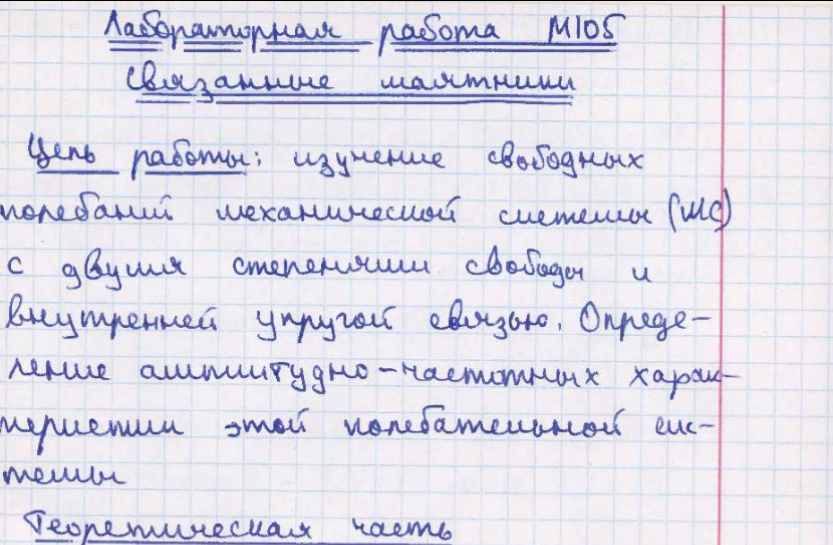 Лабораторная работа М105
Связанные маятники
Цель работы: изучение свободных
колебаний механической системы (МС)
с двумя степенями свободы и
внутренней упругой связью. Опреде-
ление амплитудно-частотных харак-
теристик этой колебательной сис-
темы
Теоретическая часть